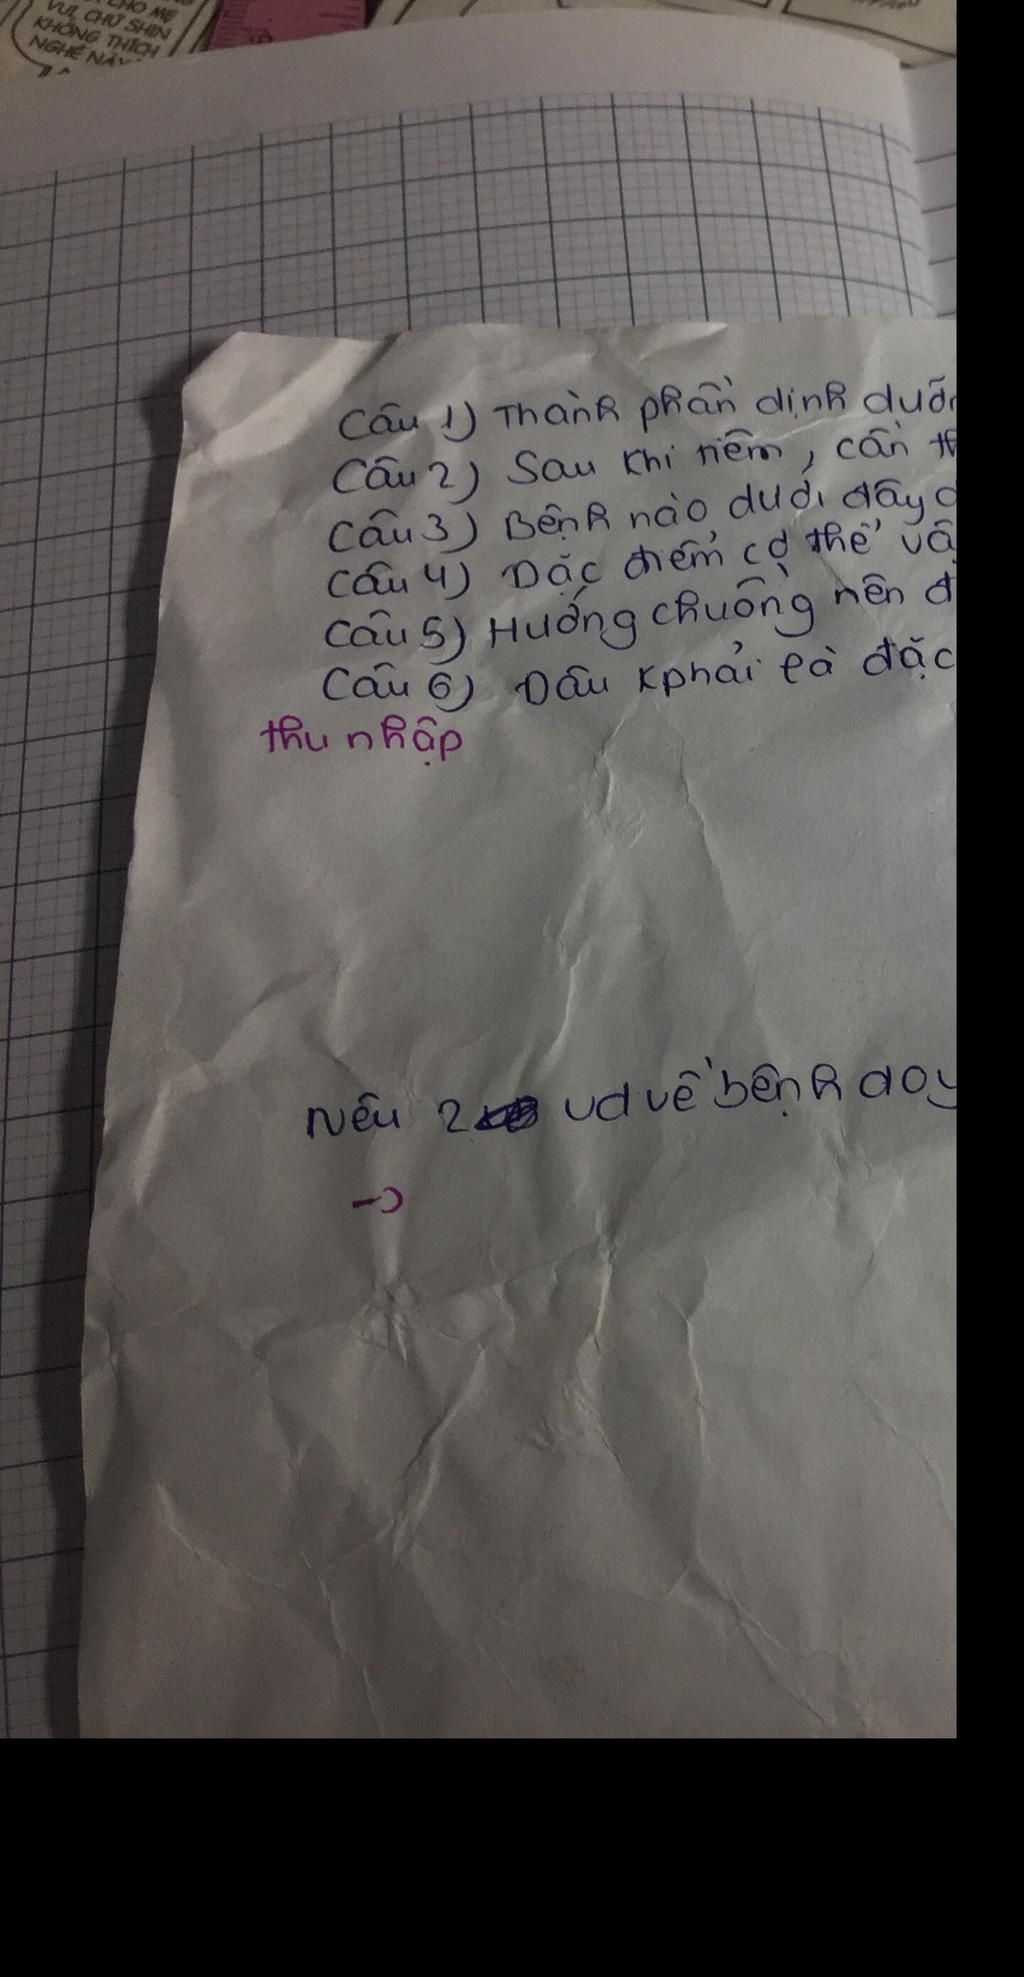 CHO MẸ
VUI, CHỨ SHIN
KHÔNG THÍCH
NGHỀ NÀY
Câu 1) Thành phần dịnh dưỡn
Câu 2) Sau khi tiêm, cần th
Câu 3) Bệnh nào dưới đây d
Câu 4) Dặc điểm cơ thể vậ
Câu 5) Hướng chuồng nên đ
Câu 6) Dâu kphải là đặc
thu nhập
Nêu 2 vd về bệnh doy
→